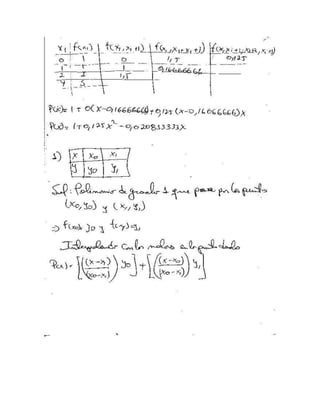 x₁ | f(x₁) | f(x₁,x₁+1) | f(x₁,x₁+1,x₁+1)
0 | 1 | 0 | 1,5 | 0,125
1 | 1 | 1 | 0,16666666
2 | 2 | 1,5
4 | 5
P(x)= 1+0(x-0,16666666)+0,125(x-0,16666666)x
P(x)= 1+0,125x² -0,0208333333x
1) x | x₀ | x₁
y | y₀ | y₁
Sol: Polinomio de grado 1 que pasa por los puntos
(x₀,y₀) y (x₁,y₁)
⇒ f(x₀)= y₀ y f(x₁)=y₁
Interpolando con los
P(x)= [((x-x₁)/(x₀-x₁)) y₀] + [((x-x₀)/(x₀-x₁)) y₁]